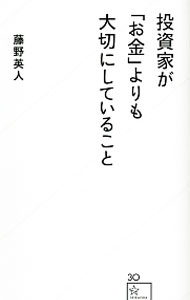 投資家が
「お金」よりも
大切にしていること
藤野英人
30